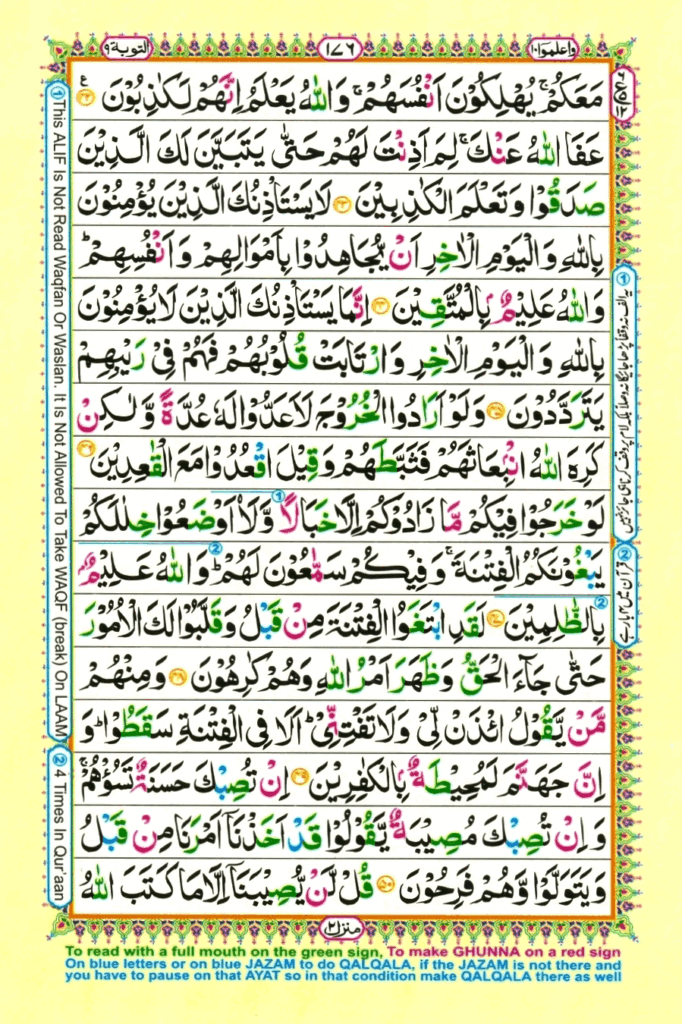 التوبة ٩
١٧٦
واعلموا ١٠
مَعَكُمْ ۚ يُهْلِكُوْنَ اَنْفُسَهُمْ ۚ وَاللّٰهُ يَعْلَمُ اِنَّهُمْ لَكٰذِبُوْنَ ﴿٤٢﴾ ع
عَفَا اللّٰهُ عَنْكَ ۚ لِمَ اَذِنْتَ لَهُمْ حَتّٰى يَتَبَيَّنَ لَكَ الَّذِيْنَ
صَدَقُوْا وَتَعْلَمَ الْكٰذِبِيْنَ ﴿٤٣﴾ لَا يَسْتَاْذِنُكَ الَّذِيْنَ يُؤْمِنُوْنَ
بِاللّٰهِ وَالْيَوْمِ الْاٰخِرِ اَنْ يُّجَاهِدُوْا بِاَمْوَالِهِمْ وَاَنْفُسِهِمْ ؕ
وَاللّٰهُ عَلِيْمٌۢ بِالْمُتَّقِيْنَ ﴿٤٤﴾ اِنَّمَا يَسْتَاْذِنُكَ الَّذِيْنَ لَا يُؤْمِنُوْنَ
بِاللّٰهِ وَالْيَوْمِ الْاٰخِرِ وَارْتَابَتْ قُلُوْبُهُمْ فَهُمْ فِيْ رَيْبِهِمْ
يَتَرَدَّدُوْنَ ﴿٤٥﴾ وَلَوْ اَرَادُوا الْخُرُوْجَ لَاَعَدُّوْا لَهٗ عُدَّةً وَّلٰكِنْ
كَرِهَ اللّٰهُ انْۢبِعَاثَهُمْ فَثَبَّطَهُمْ وَقِيْلَ اقْعُدُوْا مَعَ الْقٰعِدِيْنَ ﴿٤٦﴾
لَوْ خَرَجُوْا فِيْكُمْ مَّا زَادُوْكُمْ اِلَّا خَبَالًا وَّلَا۟اَوْضَعُوْا خِلٰلَكُمْ
يَبْغُوْنَكُمُ الْفِتْنَةَ ۚ وَفِيْكُمْ سَمّٰعُوْنَ لَهُمْ ؕ وَاللّٰهُ عَلِيْمٌۢ
بِالظّٰلِمِيْنَ ﴿٤٧﴾ لَقَدِ ابْتَغَوُا الْفِتْنَةَ مِنْ قَبْلُ وَقَلَّبُوْا لَكَ الْاُمُوْرَ
حَتّٰى جَآءَ الْحَقُّ وَظَهَرَ اَمْرُ اللّٰهِ وَهُمْ كٰرِهُوْنَ ﴿٤٨﴾ وَمِنْهُمْ
مَّنْ يَّقُوْلُ ائْذَنْ لِّيْ وَلَا تَفْتِنِّيْ ؕ اَلَا فِى الْفِتْنَةِ سَقَطُوْا ؕ وَ
اِنَّ جَهَنَّمَ لَمُحِيْطَةٌۢ بِالْكٰفِرِيْنَ ﴿٤٩﴾ اِنْ تُصِبْكَ حَسَنَةٌ تَسُؤْهُمْ ۚ
وَاِنْ تُصِبْكَ مُصِيْبَةٌ يَّقُوْلُوْا قَدْ اَخَذْنَاۤ اَمْرَنَا مِنْ قَبْلُ
وَيَتَوَلَّوْا وَّهُمْ فَرِحُوْنَ ﴿٥٠﴾ قُلْ لَّنْ يُّصِيْبَنَاۤ اِلَّا مَا كَتَبَ اللّٰهُ
منزل ٢
① This ALIF Is Not Read Waqfan Or Waslan. It Is Not Allowed To Take WAQF (break) On LAAM
② 4 Times In Qur'aan
② قرآن میں ۴ جگہ ہے
To read with a full mouth on the green sign, To make GHUNNA on a red sign
On blue letters or on blue JAZAM to do QALQALA, if the JAZAM is not there and
you have to pause on that AYAT so in that condition make QALQALA there as well